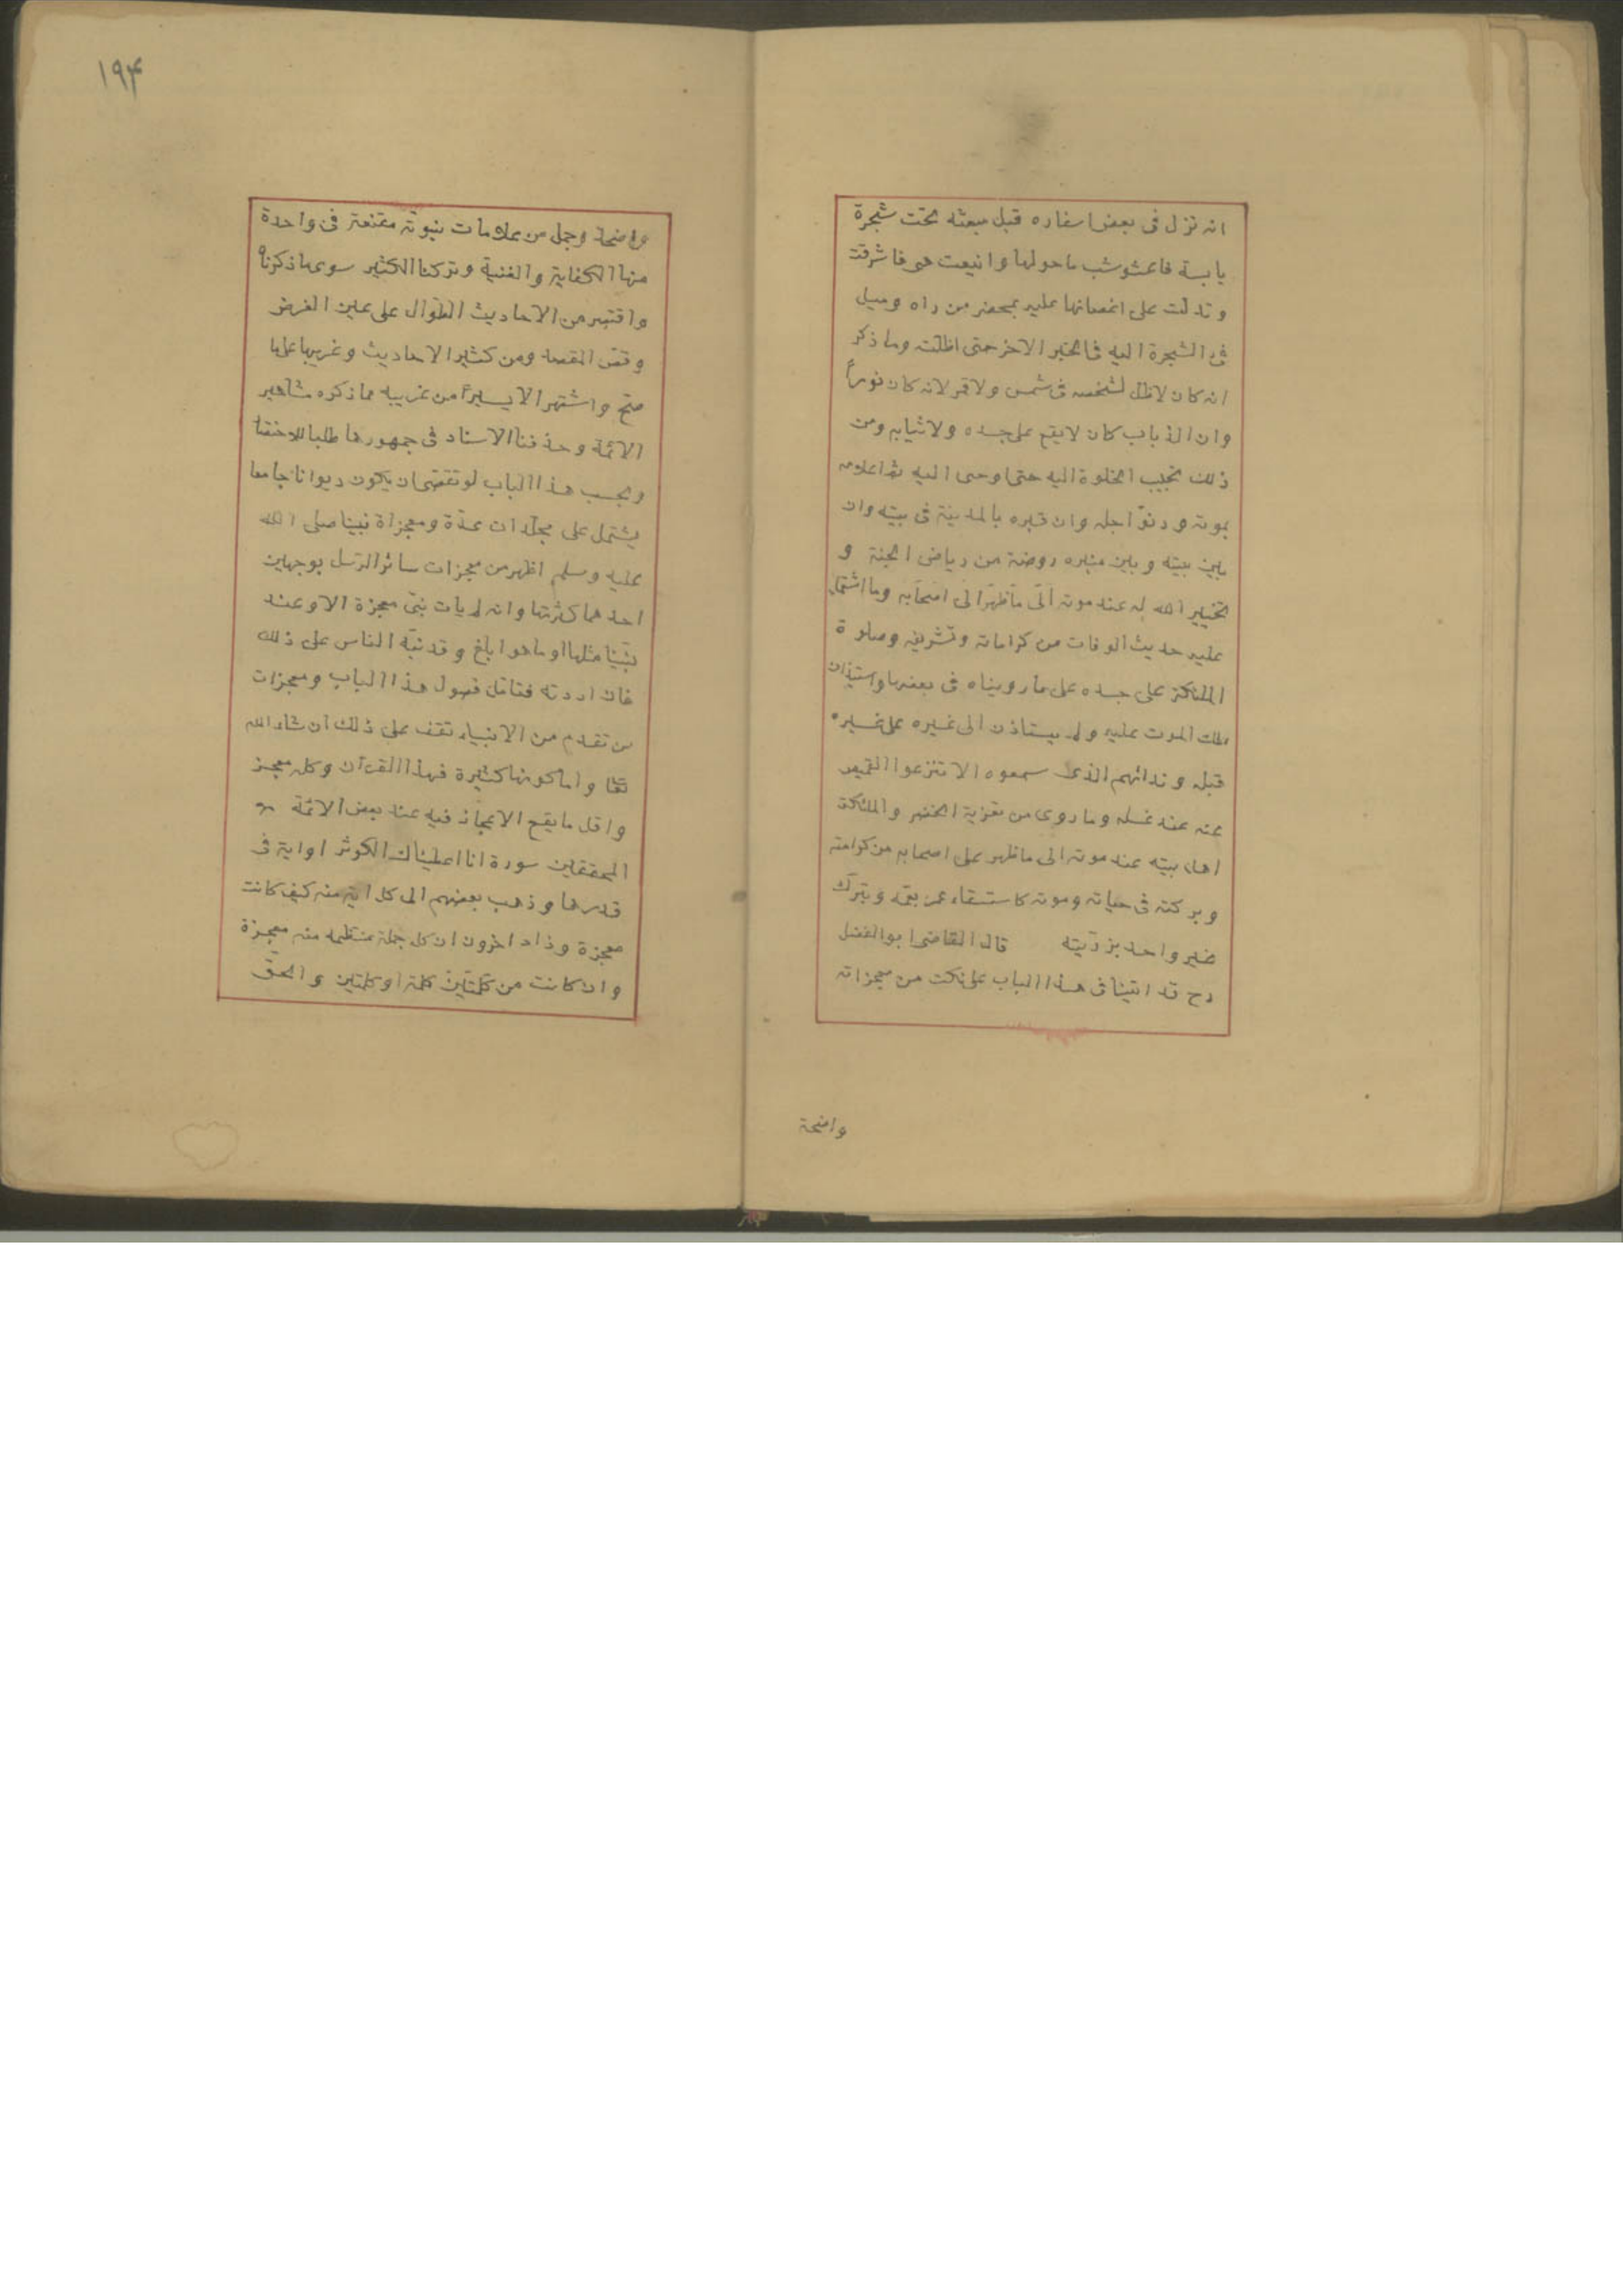 انه نزل فى بعض اسفاره قبل مبعثه تحت شجرة
يابسة فاعشوشب ماحولها واينعت هى فاشرقت
وتدلت على اغصانها عليه بمحضر من راه وميل
فئ الشجرة اليه فى الخبر الاخر حتى اظلته وما ذكر
انه كان لاظل لشخصه فى شمس ولا قمر لانه كان نوراً
وان الذباب كان لا يقع على جسده ولا ثيابه ومن
ذلك تحبيب الخلوة اليه حتى اوحى اليه ثم اعلامه
بموته ودنوّ اجله وان قبره بالمدينة فى بيته وان
بين بيته وبين منبره روضة من رياض الجنة و
تخيير الله له عند موته الى ما ظهر الى اصحابه وما اشتمل
عليه حديث الوفات من كراماته وتشريفه وصلوة
الملئكة على جسده على ما رويناه فى بعضها واستيذان
ملك الموت عليه ولم يستاذن الى غيره على غيره
قبله وندائهم الذى سمعوه الا تنزعوا القميص
عنه عند غسله وما روى من تعزية الخضر والملئكة
اهل بيته عند موته الى ما ظهر على اصحابه من كرامته
وبركته فى حياته وموته كاستسقاء عمر بعمه وتبرّك
غير واحد بذرّيته قال القاضى ابو الفضل
رح قد اتينا فى هذا الباب على نكت من معجزاته
واضحة
١٩۴
واضحة وجمل من علامات نبوته مقنعة فى واحدة
منها الكفاية والغنية وتركنا الكثير سوى ما ذكرناه
واقتصر من الاحاديث الطوال على عين الغرض
وفصّ المقصد ومن كثير الاحاديث وغريبها على ما
صحّ واشتهر الا يسيراً من غريبه مما ذكره مشاهير
الائمة وحذفنا الاسناد فى جمهورها طلبا للاختصا
وبحسب هذا الباب لو تقضى ان يكون ديوانا جامعا
يشتمل على مجلّدات عدّة ومعجزاة نبينا صلى الله
عليه وسلم اظهر من معجزات سائر الرّسل بوجهين
احدهما كثرتها وانه لم يأت نبىّ معجزة الا وعند
نبيّنا مثلها او ما هو ابلغ وقد نبّه الناس على ذلك
فان اردته فتامّل فصول هذا الباب ومعجزات
من تقدم من الانبياء تقف على ذلك ان شاء الله
تعا واما كونها كثيرة فهذا القرآن وكله معجز
واقل ما يقع الاعجاز فيه عند بعض الائمة
المحققين سورة انا اعطيناك الكوثر او اية فى
قدرها وذهب بعضهم الى كل اية منه كيف كانت
معجزة وزاد اخرون ان كل جملة منتظمة منه معجزة
وان كانت من كلمتين كلمة او كلمتين والحقّ